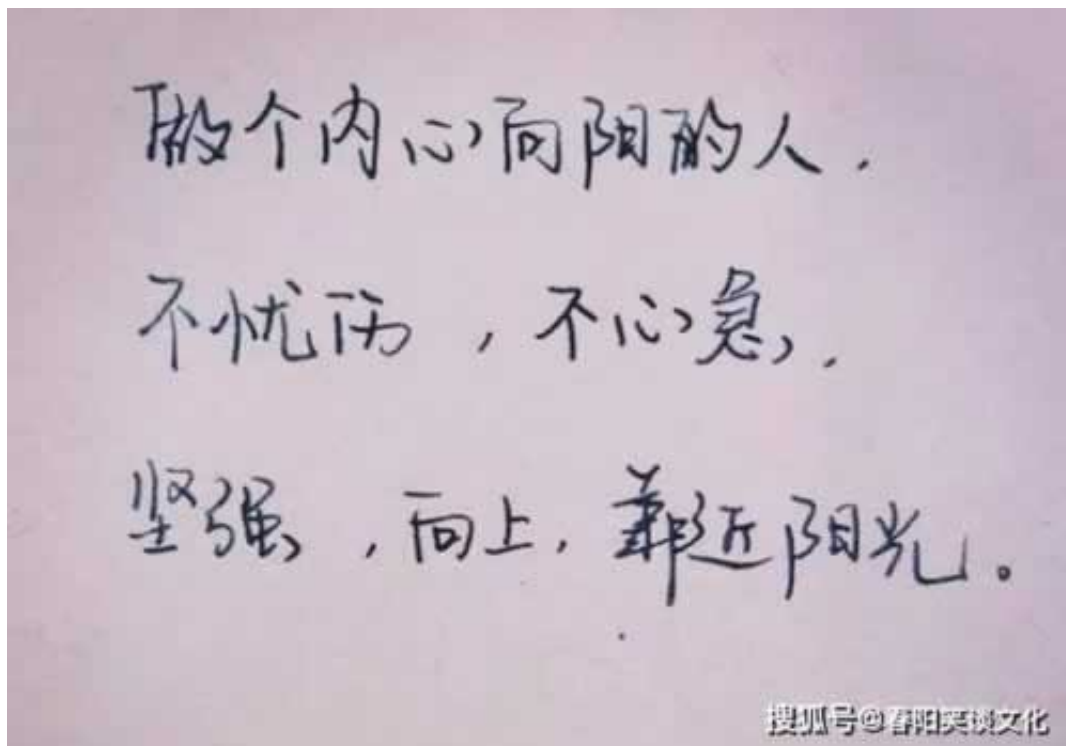 做个内心向阳的人.
不忧伤，不心急.
坚强，向上，靠近阳光。
搜狐号@春阳笑谈文化